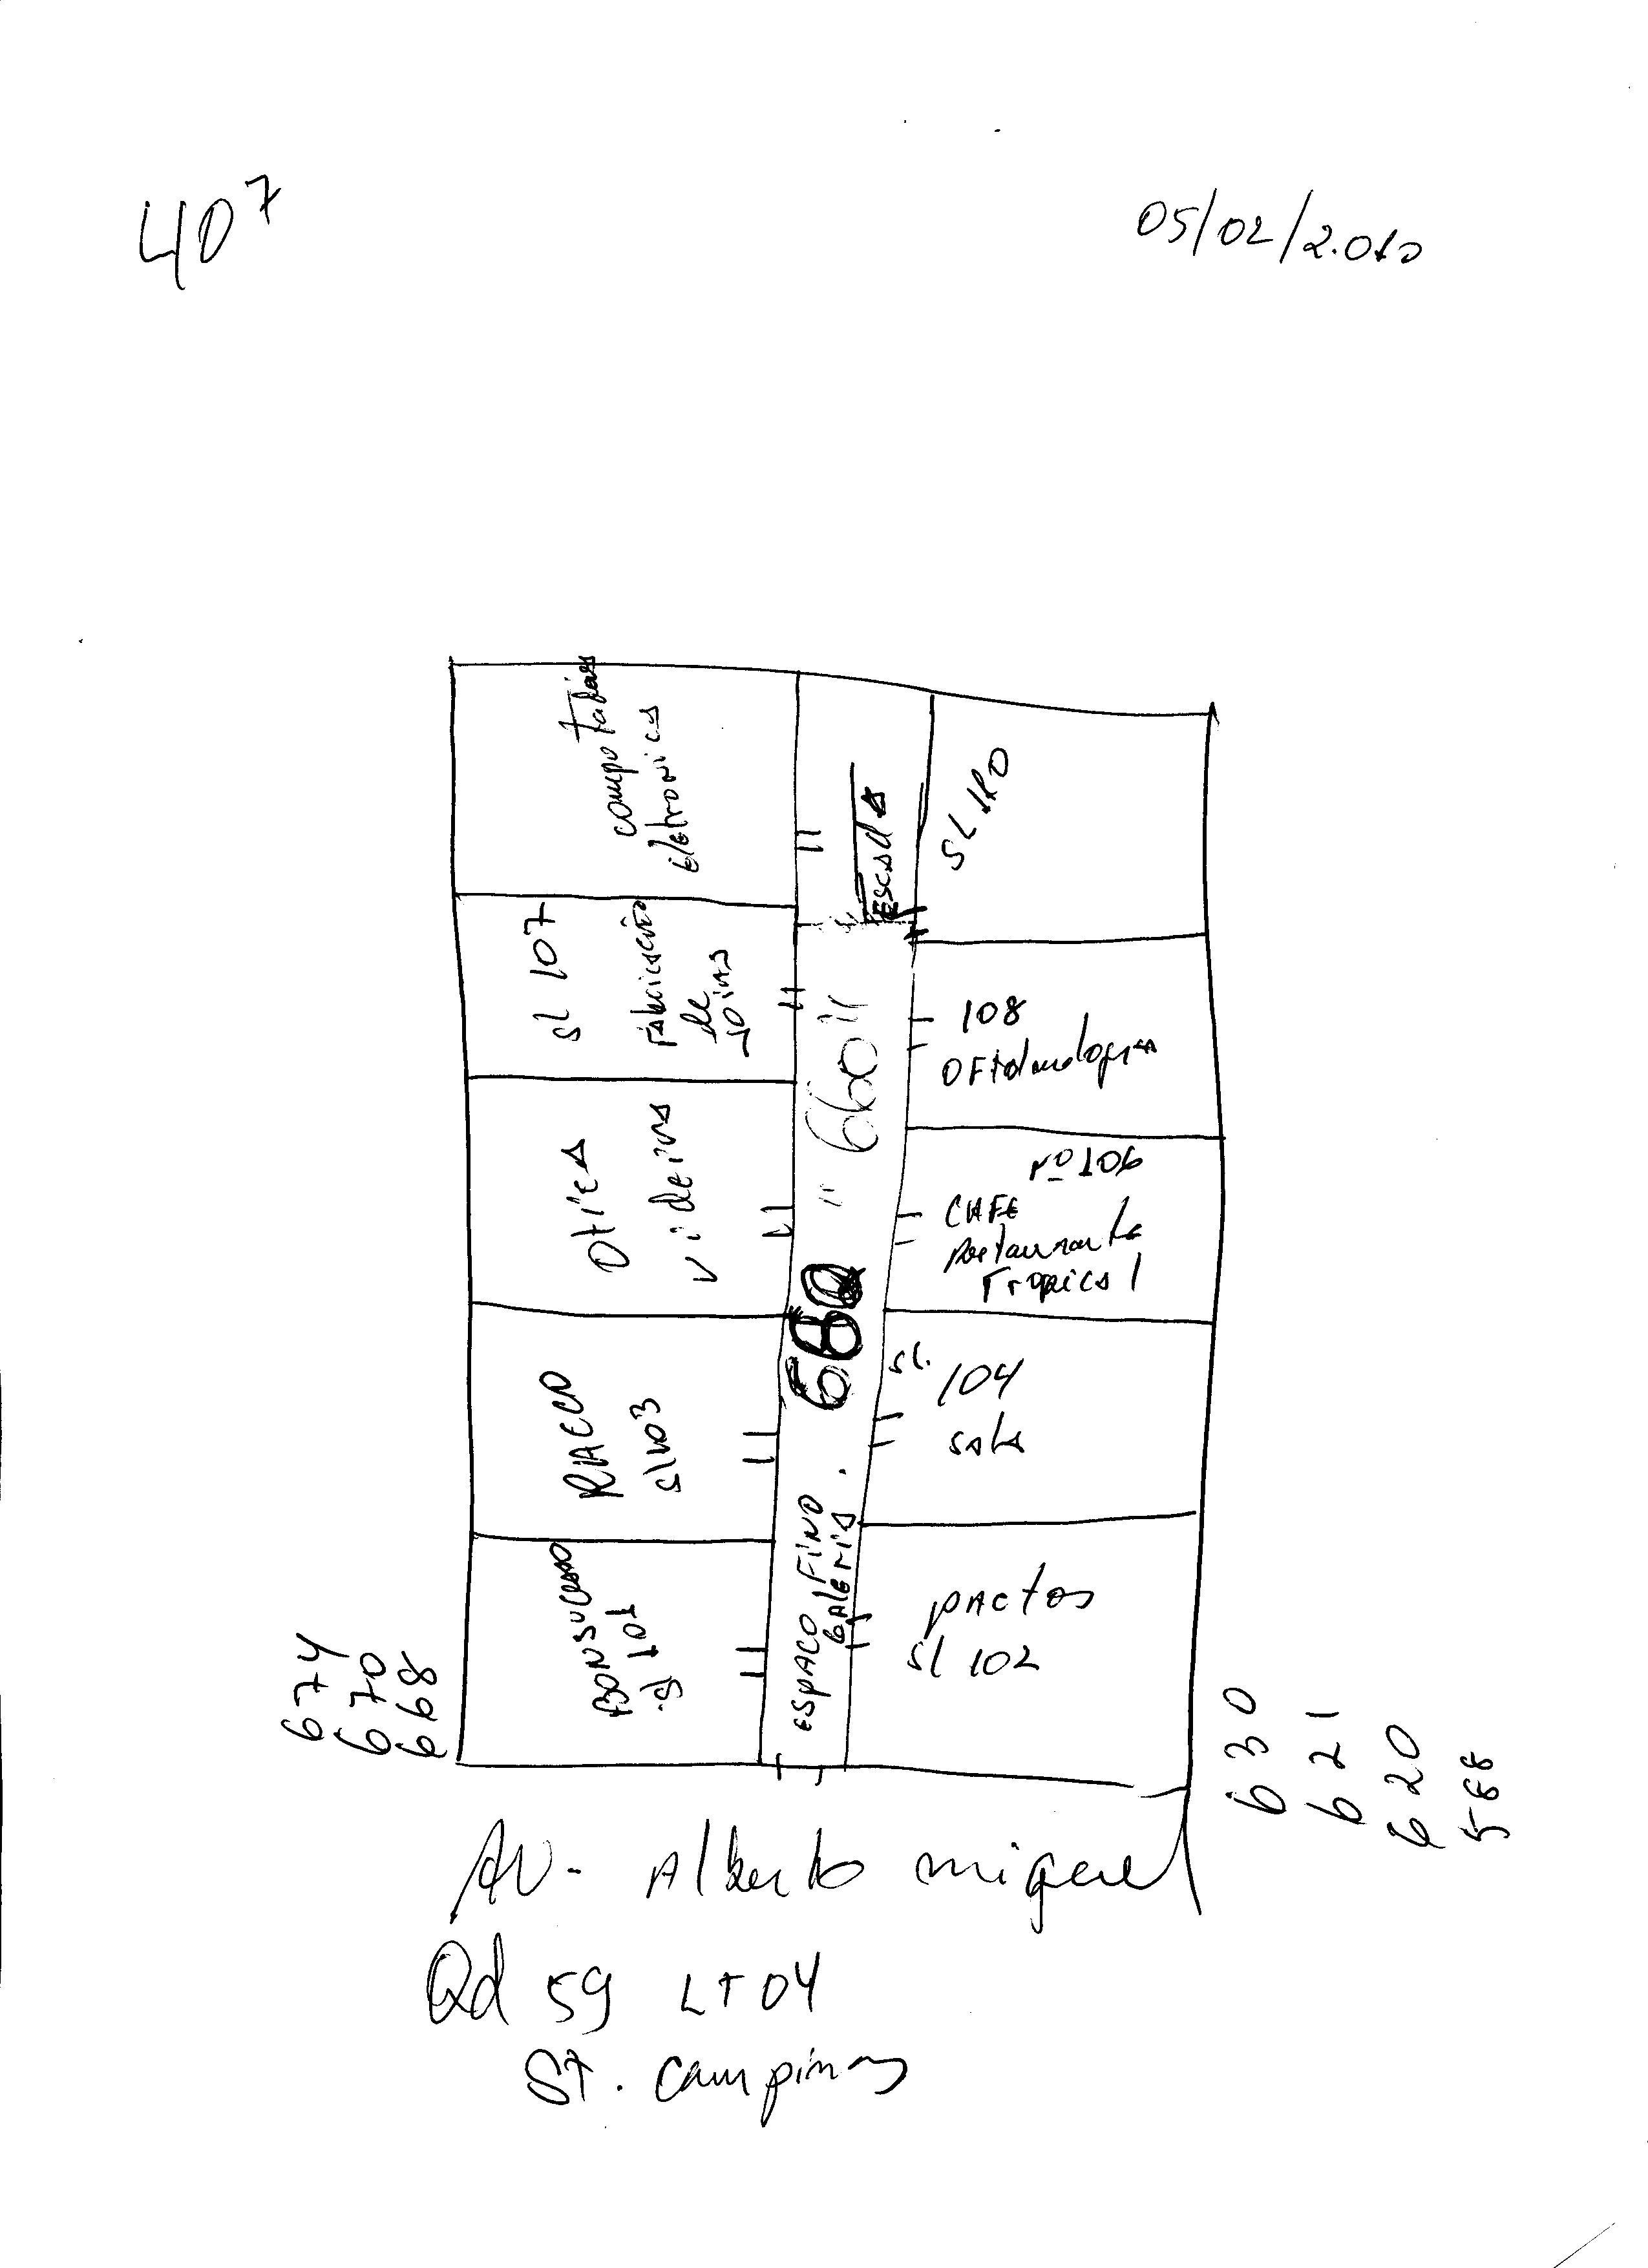 407
05/02/2.010
eletronica
SL 110
Escada
sl 107
Fabricação
de
Joias
108
OFtalmologia
"660"
Otica
Videira
nº 106
CAFE
Restaurante
Tropical
660
RIACCO
sl 103
sl. 104
sala
ESPACO FINO
GAleria
BONSUCESSO
sl 101
pActos
sl 102
674
670
668
630
621
620
588
AV- Alberto miguel
Qd 59 LT 04
ST. Campinas